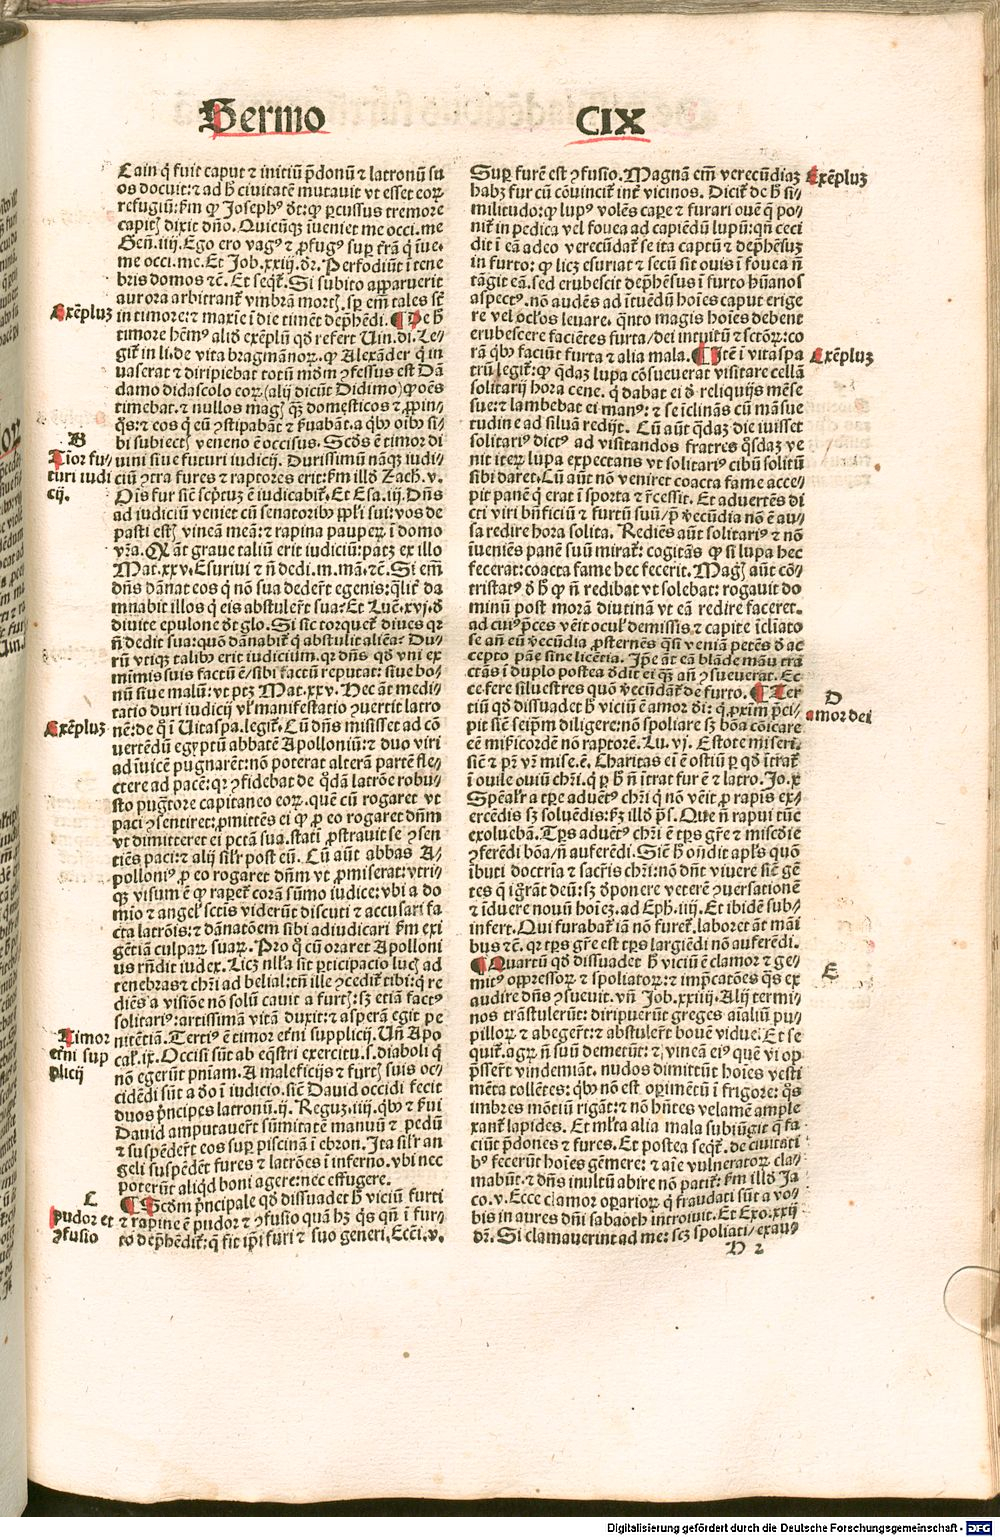 Sermo CIX
Cain q̄ fuit caput ⁊ initiū p̄donū ⁊ latronū su
os docuit: ⁊ ad h̄ civitatē mutavit vt esset eoꝝ
refugiū: ẜm ꝙ Josephꝰ dt: ꝙ ꝑcussus tremore
capitꝭ dixit dño. Quicūqꝫ iueniet me occi. me
Gen̄. iiij. Ego ero vagꝰ ⁊ ꝓfugꝰ suꝑ t̄rā q̄ iue.
me occi. me. Et Job. xxiiij. dr̄. Perfodiūt i tene
bris domos ⁊c̄. Et seqt̄. Si subito apparuerit
aurora arbitrant̄ vmbrā mortꝭ. sꝑ em̄ tales st̄
Exēpluꝫ
in timore: ⁊ maxie i die timēt dep̄hēdi. ¶ De h̄
timore hēmꝰ aliḋ exēplū qḋ refert Uin. di. Le
git̄ in li. de vita bragmānoꝝ. ꝙ Alexāder q̄ in
vaserat ⁊ diripiebat totū mōm ꝯfessus est Dā
damo didascolo eoꝝ (alij dicūt Didimo) ꝙ oēs
timebat. ⁊ nullos magꝭ qꝫ domesticos ⁊ ꝓpin/
qs̄: ⁊ eos q̄ eū ꝯstipabāt ⁊ ẜuabāt. a qb̄ꝰ oib̄ꝰ si/
bi subiectꝭ veneno ē occisus. Scḋs ē timor di
B
Tior fu/
turi iudi
cij.
uini siue futuri iudicij. Durissimū nāqꝫ iudi/
ciū ꝯtra fures ⁊ raptores erit: ẜm illḋ Zach. v.
Oīs fur siē sc̄ptuꝫ ē iudicabit̄. Et Esa. iij. Dn̄s
ad iudiciū veniet cū senatorib̄ꝰ pp̄li sui: vos de
pasti estꝭ vineā meā: ⁊ rapina pauperꝝ i domo
vr̄a. Q̄ āt graue taliū erit iudiciū: patꝫ ex illo
Mat. xxv. Esuriui ⁊ n̄ dedi. m. mā. ⁊c̄. Si em̄
dn̄s dānat eos q̄ nō sua dedert̄ egenis: qlit̄ da
mnabit illos q̄ eis abstulert̄ sua? Et Luc̄. xvj. ḋ
diuite epulone ḋt glo. Si sic torquet̄ diues qꝛ
n̄ dedit sua: quō dānabit̄ q̄ abstulit aliēa? Du/
rū vtiqꝫ talib̄ꝰ erit iudicium. qꝛ dn̄s qḋ vni ex
minimis suis factū ē/sibi factū reputat: siue bo/
nū siue malū: vt ptꝫ Mat. xxv. Hec āt medi/
tatio duri iudicij vl̄ manifestatio ꝯuertit latro
Exēpluꝫ
nē: de q̄ i Uitaspa. legit̄. Cū dn̄s misisset ad cō
uertēdū egyptū abbatē Apolloniū: ⁊ duo viri
ad iuicē pugnarēt: nō poterat alterā partē fle/
ctere ad pacē: qꝛ ꝯfidebat de qdā latrōe robu/
sto pugtore capitaneo eoꝝ. quē cū rogaret vt
paci ꝯsentiret: ꝓmittēs ei ꝙ ꝓ eo rogaret dn̄m
vt dimitteret ei pctā sua. stati ꝓstrauit se ꝯsen
tiēs paci: ⁊ alij silr̄ post eū. Cū aūt abbas A/
polloniꝰ ꝓ eo rogaret dn̄m vt ꝓmiserat: vtri/
qꝫ visum ē ꝙ raperet̄ corā sūmo iudice: vbi a do
mio ⁊ angelꝭ sctis viderūt discuti ⁊ accusari fa
cta latrōis: ⁊ dānatōem sibi adiudicari ẜm exi
gētiā culparꝝ suarꝝ. Pro q̄ cū oraret Apolloni
us rn̄dit iudex. Licꝫ nlla sit ꝑticipacio lucꝭ ad
tenebras ⁊ chri̅ ad belial: tn̄ ille ꝯcedit̄ tibi: q̄ re
diēs a visiōe nō solū cauit a furtꝭ: sꝫ etiā factꝰ
solitariꝰ: artissimā vitā duxit: ⁊ asperā egit pe
Timor
et̄ni sup
plicij
nitētiā. Tertiꝰ ē timor et̄ni supplicij. Un̄ Apo
cal̄. ix. Occisi sūt ab eq̄stri exercitu. s. diaboli q̄
nō egerūt pniam. A maleficijs ⁊ furtꝭ suis oc/
cidēdi sūt a ḋo i iudicio. sicē Dauid occidi fecit
duos p̄ncipes latronū. ij. Reguꝫ. iiij. qb̄ꝰ ⁊ ẜui
Dauid amputauert̄ sūmitatē manuū ⁊ pedū
⁊ suspēdert̄ eos suꝑ piscinā i ebron. Ita silr̄ an
geli suspēdēt fures ⁊ latrōes i inferno. vbi nec
poterūt aliqd boni agere: nec effugere.
C
pudor et
ꝯfusio
¶ Scḋm p̄ncipale qḋ dissuadet h̄ viciū furti
⁊ rapine ē pudor ⁊ ꝯfusio quā hꝫ qs̄ qn̄ i fur/
to dep̄hēdit̄: q̄ fit ip̄i furi ⁊ suo generi. Ecci̅. v.
Suꝑ furē est ꝯfusio. Magnā em̄ verecūdiaꝫ
Exēpluꝫ
habꝫ fur cū cōuincit̄ int̄ vicinos. Dicit̄ de h̄ si/
militudo: ꝙ lupꝰ volēs caꝑe ⁊ furari ouē q̄ po/
nit̄ in pedica vel fouea ad capiēdū lupū: qn̄ ceci
dit i eā adeo verecūdat̄ se ita captū ⁊ dep̄hēsuꝫ
in furto: ꝙ licꝫ esuriat ⁊ secū sit ouis i fouea n̄
tāgit eā. sed erubescit dep̄hēsus i furto hūanos
aspectꝰ. nō audēs ad ituēdū hoīes caput erige
re vel oclos leuare. q̄nto magis hoīes debent
erubescere faciētes furta/dei intuitū ⁊ sctōꝝ: co
Exēpluꝫ
rā qb̄ꝰ faciūt furta ⁊ alia mala. ¶ Itē i vitaspa
trū legit̄: ꝙ qdaꝫ lupa cōsueuerat visitare cellā
solitarij hora cene. q̄ dabat ei ḋ reliquijs mēse
sue: ⁊ lambebat ei manꝰ: ⁊ se iclinās cū māsue
tudine ad siluā redijt. Cū aūt qdaꝫ die iuisset
solitariꝰ dictꝰ ad visitandos fratres qsdaꝫ ve
nit iteꝝ lupa expectans vt solitariꝰ cibū solitū
sibi daret. Cū aūt nō veniret coacta fame acce/
pit panē q̄ erat i sporta ⁊ r̄cessit. Et aduertēs di
cti viri bn̄ficiū ⁊ furtū suū/p̄ v̄ecūdia nō ē au/
sa redire hora solita. Rediēs aūt solitariꝰ ⁊ nō
iueniēs panē suū mirat̄: cogitās ꝙ si lupa hec
fecerat: coacta fame hec fecerit. Magꝭ aūt cō/
tristatꝰ ḋ h̄ ꝙ n̄ redibat vt solebat: rogauit do
minū post morā diutinā vt eā redire faceret.
ad cuiꝰ p̄ces vēit oculꝭ demissis ⁊ capite iclīato
se an̄ eū v̄ecūdia ꝓsternēs qsi veniā petēs ḋ ac
cepto pāe sine licētia. Ip̄e āt eā blāde māu tra
ctās i duplo postea ḋdit ei qꝫ an̄ ꝯsueuerat. Ec
ce fere siluestres quō v̄ecūdat̄ de furto. ¶ Ter
D
amor dei
tiū qḋ dissuadet h̄ viciū ē amor di: q̄ ꝓxim̄ p̄ci/
pit siē seip̄m diligere: nō spoliare sꝫ bōa cōicare
eē mis̄icordē nō raptorē. Lu. vj. Estote miseri.
siē ⁊ pr̄ vr̄ mise. ē. Charitas ei ē ostiū ꝑ qḋ itrat̄
i ouile ouiū chri̅. q̄ ꝑ h̄ n̄ itrat fur ē ⁊ latro. Jo. x
Spēalr̄ a tꝑe aduētꝰ chri̅ q̄ nō vēit ꝓ rapis ex/
ercēdis sꝫ soluēdis: ẜꝫ illḋ p̄s. Que n̄ rapui tūc
exoluebā. Tꝑs aduētꝰ chri̅ ē tꝑs gr̄e ⁊ mis̄cdie
ꝯferēdi bōa/n̄ auferēdi. Siē h̄ on̄dit apl̄s quō
ibuti doctrīa ⁊ sacr̄is chri̅: nō dn̄t viuere siē gē
tes q̄ igrāt deū: sꝫ ḋponere veterē ꝯuersationē
⁊ iduere nouū hoīeꝫ. ad Eph. iiij. Et ibidē sub/
infert. Qui furabat̄ iā nō furet̄. laboret āt māi
bus ⁊c̄. qꝛ tꝑs gr̄e est tꝑs largiēdi nō auferēdi.
E
¶ Quartū qḋ dissuadet h̄ viciū ē clamor ⁊ ge/
mitꝰ oppressoꝝ ⁊ spoliatoꝝ: ⁊ imp̄catōes qs̄ ex
audire dn̄s ꝯsueuit. vn̄ Job. xxiiij. Alij termi/
nos trāstulerūt: diripuerūt greges aialiū pu/
pilloꝝ ⁊ abegert̄: ⁊ abstulert̄ bouē vidue. Et se
quit̄. agꝝ n̄ suū demetūt: ⁊ vineā eiꝰ quē vi op
p̄ssert̄ vindemiāt. nudos dimittūt hoīes vesti
mēta tollētes: qb̄ꝰ nō est oꝑimētū i frigore: qs̄
imbres mōtiū rigāt: ⁊ nō hn̄tes velamēample
xant̄ lapides. Et mlta alia mala subiūgit q̄ fa
ciūt p̄dones ⁊ fures. Et postea seqt̄. de ciuitati
bꝰ fecerūt hoīes gēmere: ⁊ aīe vulneratoꝝ cla/
mabūt. ⁊ dn̄s inultū abire nō patit̄: ẜm illḋ Ja
co. v. Ecce clamor oꝑarioꝝ q̄ fraudati sūt a vo/
bis in aures dn̄i sabaoth introiuit. Et Exo. xxij
dr̄. Si clamauerint ad me: scꝫ spoliati/exau/
H 2
Digitalisierung gefördert durch die Deutsche Forschungsgemeinschaft - DFG